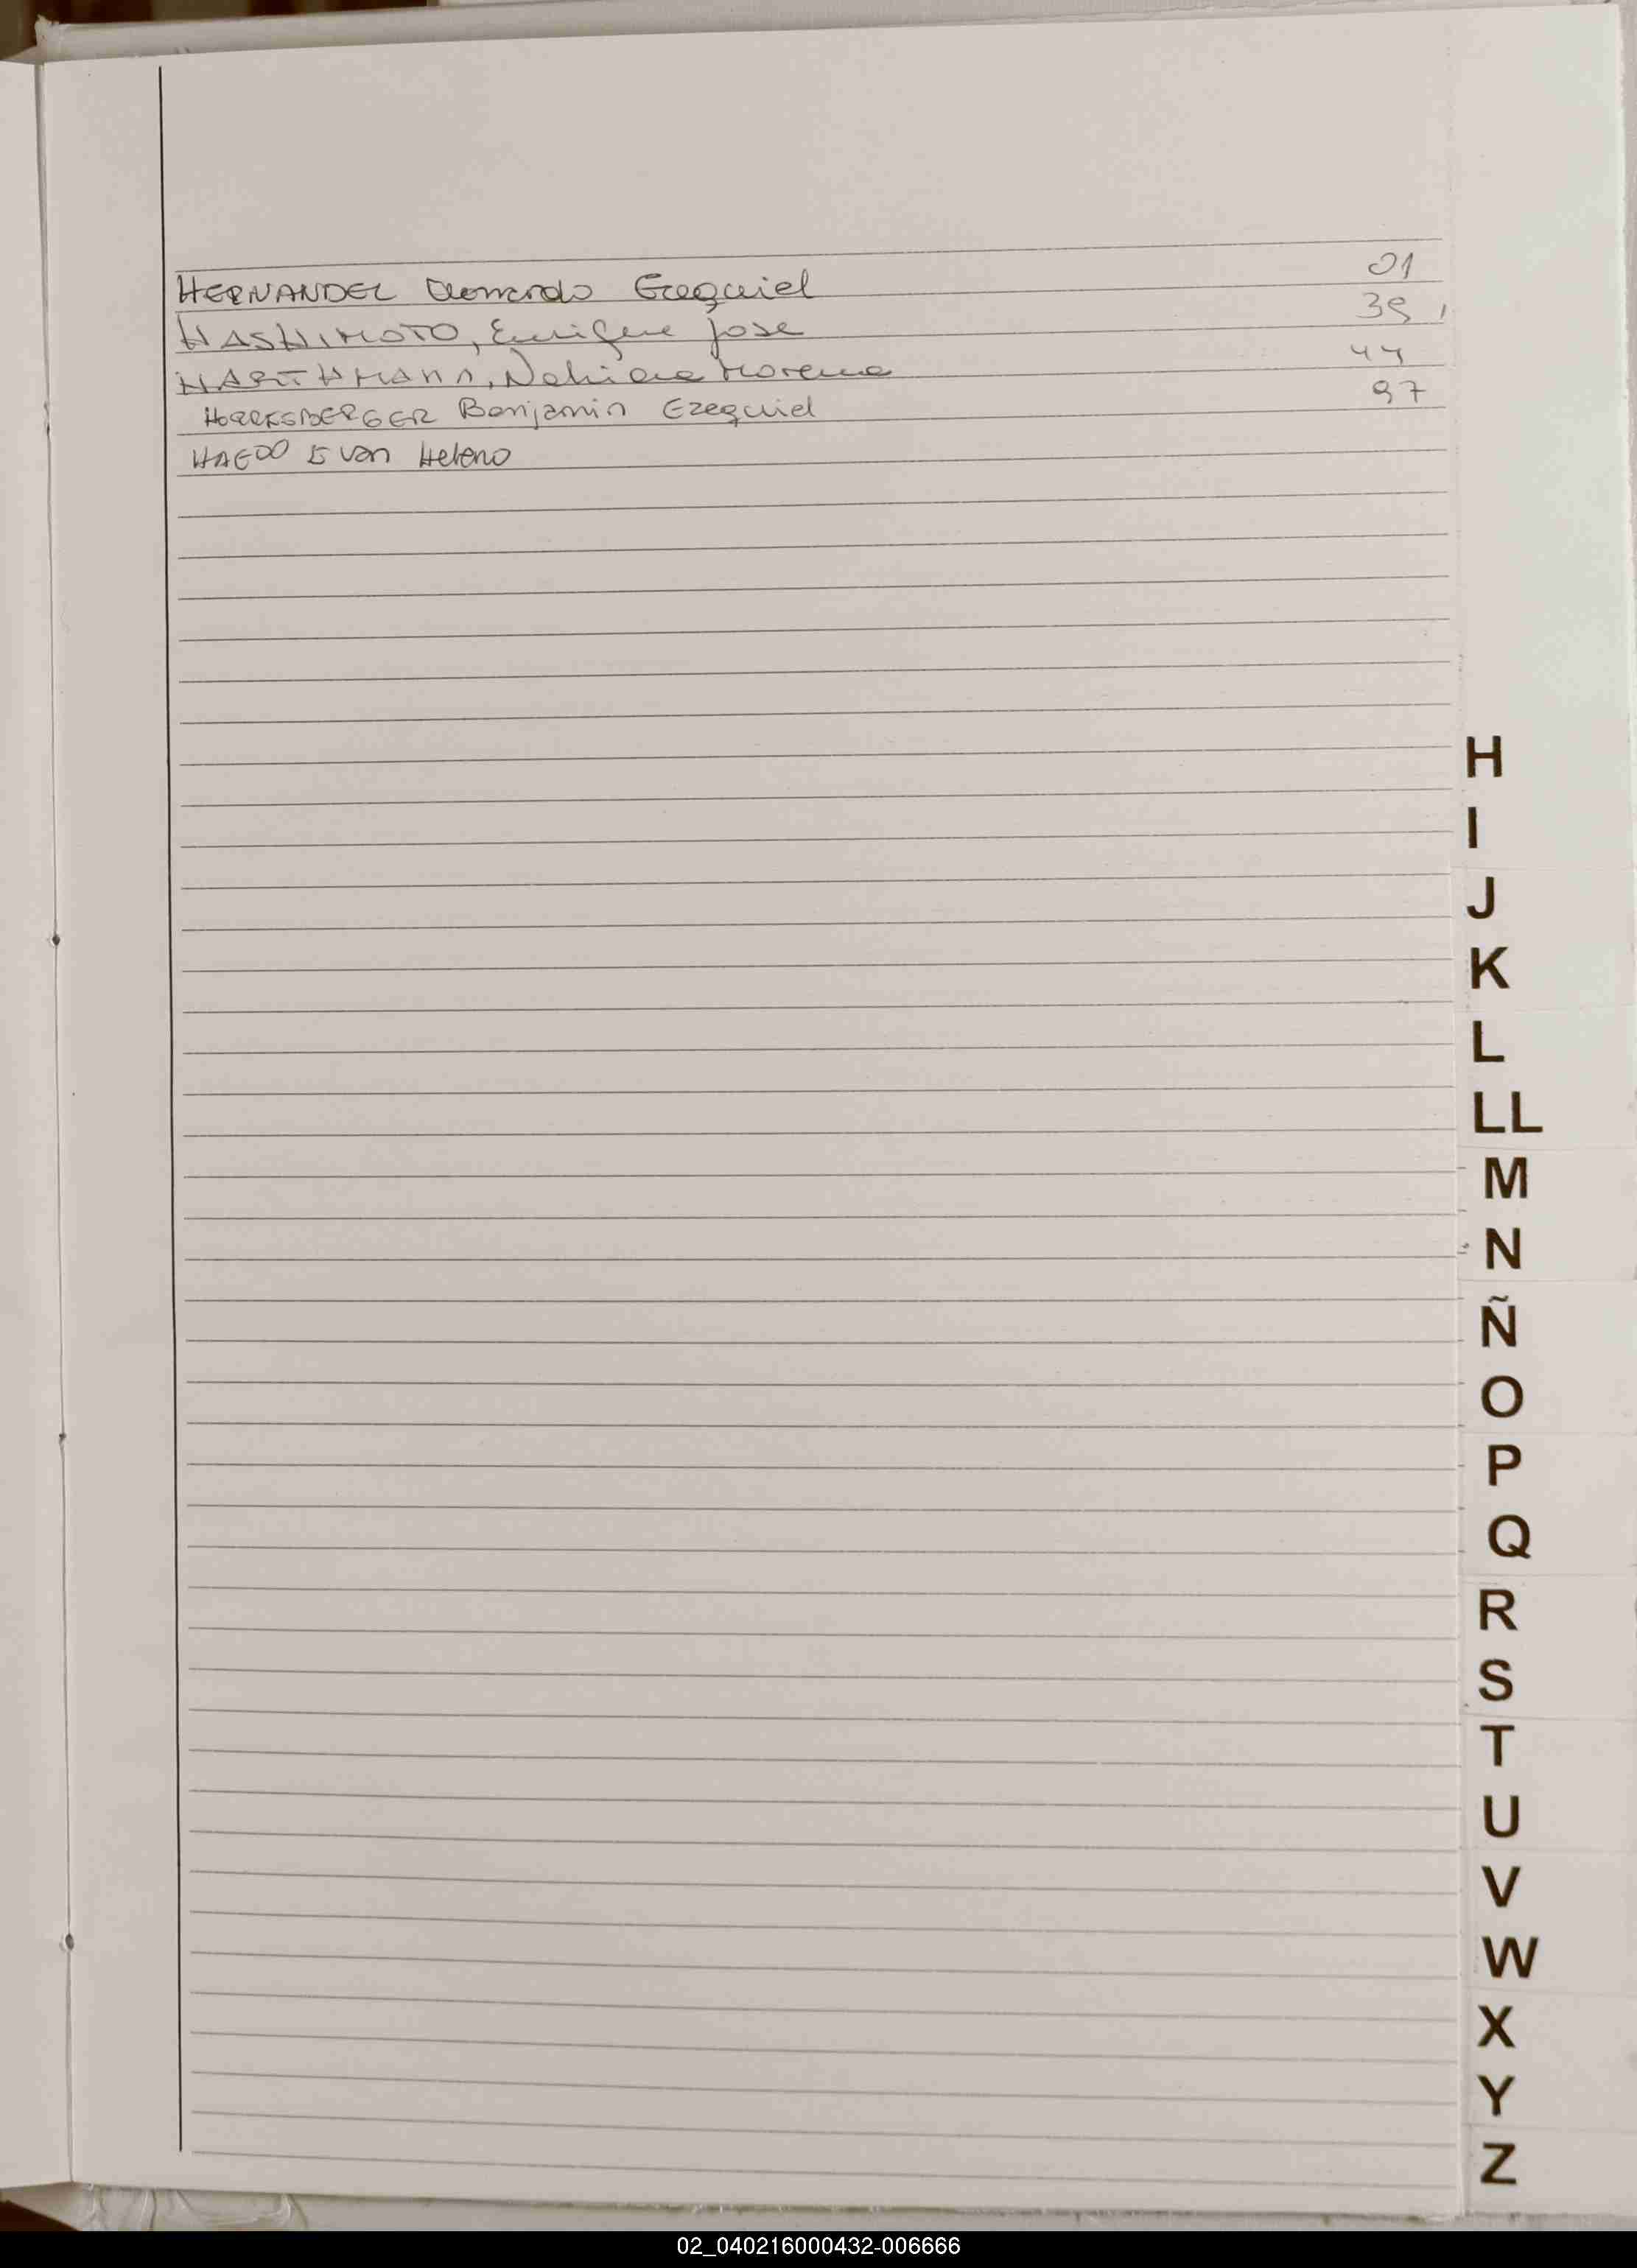 HERNANDEZ Leonardo Ezequiel 01
HASHIMOTO, Enrique Jose 39
HARTHMANN, Nahiara Morena 44
Benjamin Ezequiel 97
HAEDO Evan Heleno
H
I
J
K
L
LL
M
N
Ñ
O
P
Q
R
S
T
U
V
W
X
Y
Z
02_040216000432-006666